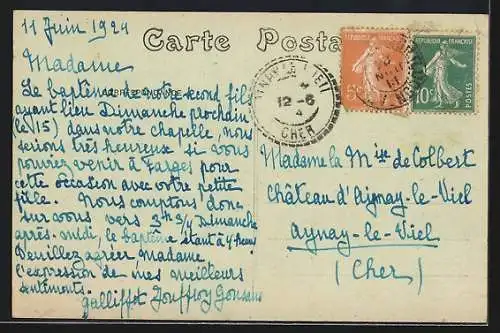 11 Juin 1924
Carte Postale
Madame
Le baptême de notre second fils
ayant lieu Dimanche prochain
(le 15) dans notre chapelle, nous
serions très heureux si vous
pouviez venir à Farges pour
cette occasion avec votre petite
fille. Nous comptons donc
sur vous vers 3h 3/4 Dimanche
après-midi, le baptême étant à 4 heures
Veuillez agréer, Madame
l'expression de mes meilleurs
sentiments.
Galliffet
Madame la Mise de Colbert
Château d'Aynay-le-Viel
Aynay-le-Viel
(Cher)
12-6
CHER
REPUBLIQUE FRANÇAISE
5c
REPUBLIQUE FRANÇAISE
10c